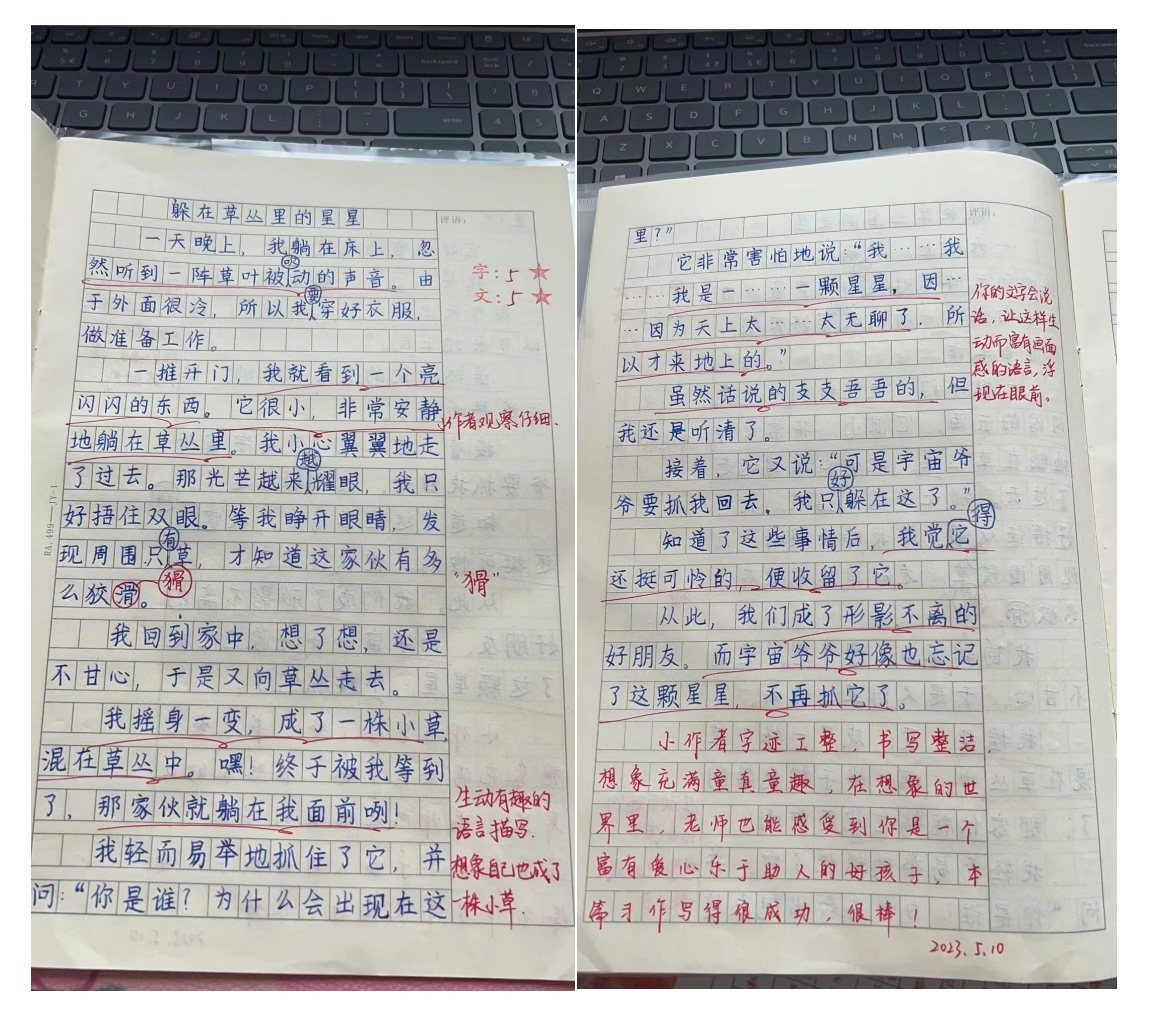 躲在草丛里的星星
评语:
一天晚上，我躺在床上，忽
然听到一阵草叶被吹动的声音。由
字:5★
于外面很冷，所以我要穿好衣服，
文:5★
做准备工作。
一推开门，我就看到一个亮
闪闪的东西。它很小，非常安静
小作者观察仔细.
地躺在草丛里。我小心翼翼地走
了过去。那光芒越来越耀眼，我只
好捂住双眼。等我睁开眼睛，发
现周围只有草，才知道这家伙有多
么狡滑。
猾
“猾”
我回到家中，想了想，还是
不甘心，于是又向草丛走去。
我摇身一变，成了一株小草，
混在草丛中。嘿！终于被我等到
了，那家伙就躺在我面前咧！
生动有趣的
语言描写.
我轻而易举地抓住了它，并
想象自己也成了
问：“你是谁？为什么会出现在这
一株小草.
RA.499—JY-1
里？”
评语:
它非常害怕地说：“我……我
……我是一……一颗星星，因…
…因为天上太……太无聊了，所
以才来地上的。”
你的文字会说
话，让这样生
动而富有画面
感的语言，浮
现在眼前。
虽然话说的支支吾吾的，但
我还是听清了。
接着，它又说：“可是宇宙爷
爷要抓我回去，我只好躲在这了。”
知道了这些事情后，我觉得它
还挺可怜的，便收留了它。
从此，我们成了形影不离的
好朋友。而宇宙爷爷好像也忘记
了这颗星星，不再抓它了。
小作者字迹工整，书写整洁，
想象充满童真童趣，在想象的世
界里，老师也能感受到你是一个
富有爱心乐于助人的好孩子，本
篇习作写得很成功，很棒！
2023.5.10